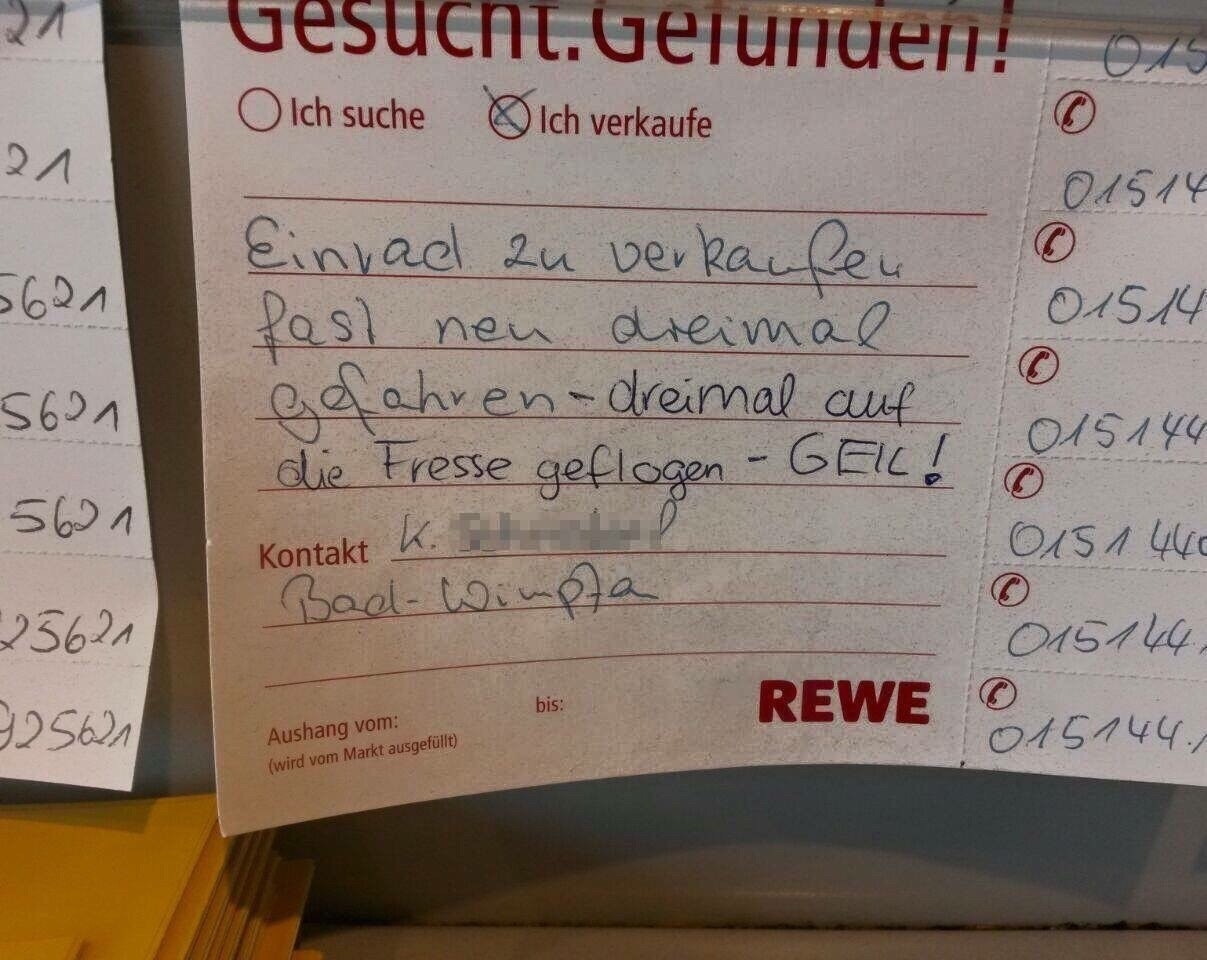 Gesucht.Gefunden!
Ich suche
Ich verkaufe
Einrad zu verkaufen
fast neu dreimal
gefahren - dreimal auf
die Fresse geflogen - GEIL!
Kontakt K.
Bad-Wimpfen
Aushang vom:
bis:
(wird vom Markt ausgefüllt)
REWE
015
01514
01514
015144
0151440
015144
015144
21
21
5621
5621
5621
25621
925621